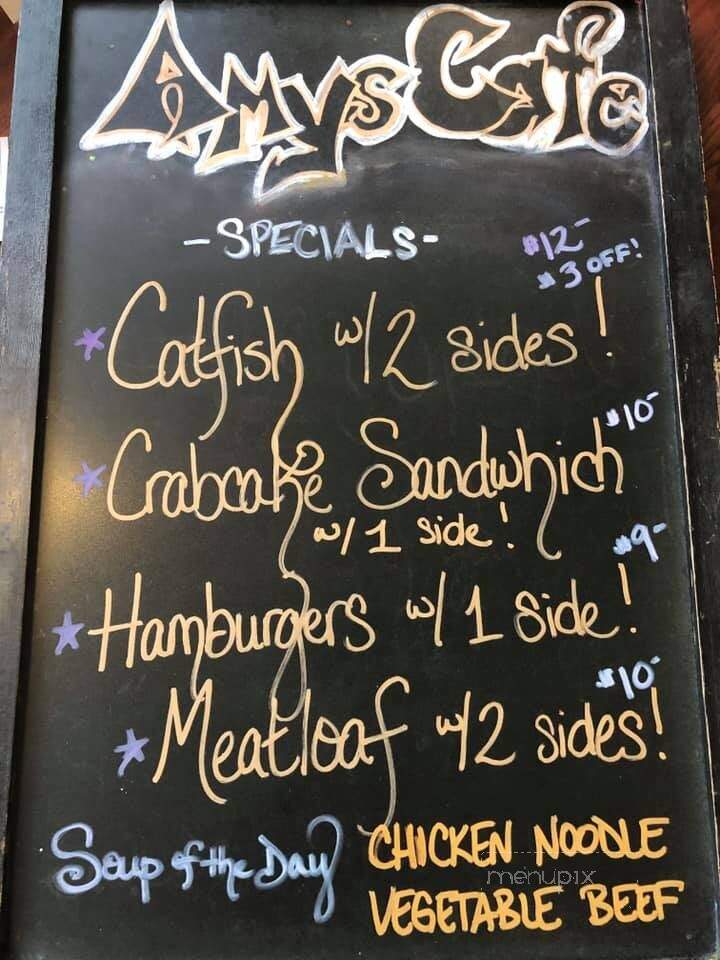 Amys Cafe
-SPECIALS-
$12-
$3 OFF!
Catfish w/2 sides!
$10-
Crabcake Sandwhich
w/1 side!
$9-
Hamburgers w/1 side!
$10-
Meatloaf w/2 sides!
Soup of the Day CHICKEN NOODLE
VEGETABLE BEEF
menupix